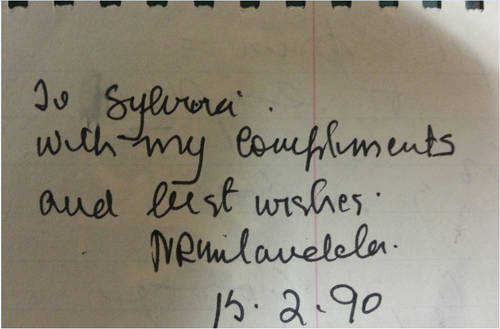 To Sylvia.
with my compliments
and best wishes.
NRMandela.
15.2.90